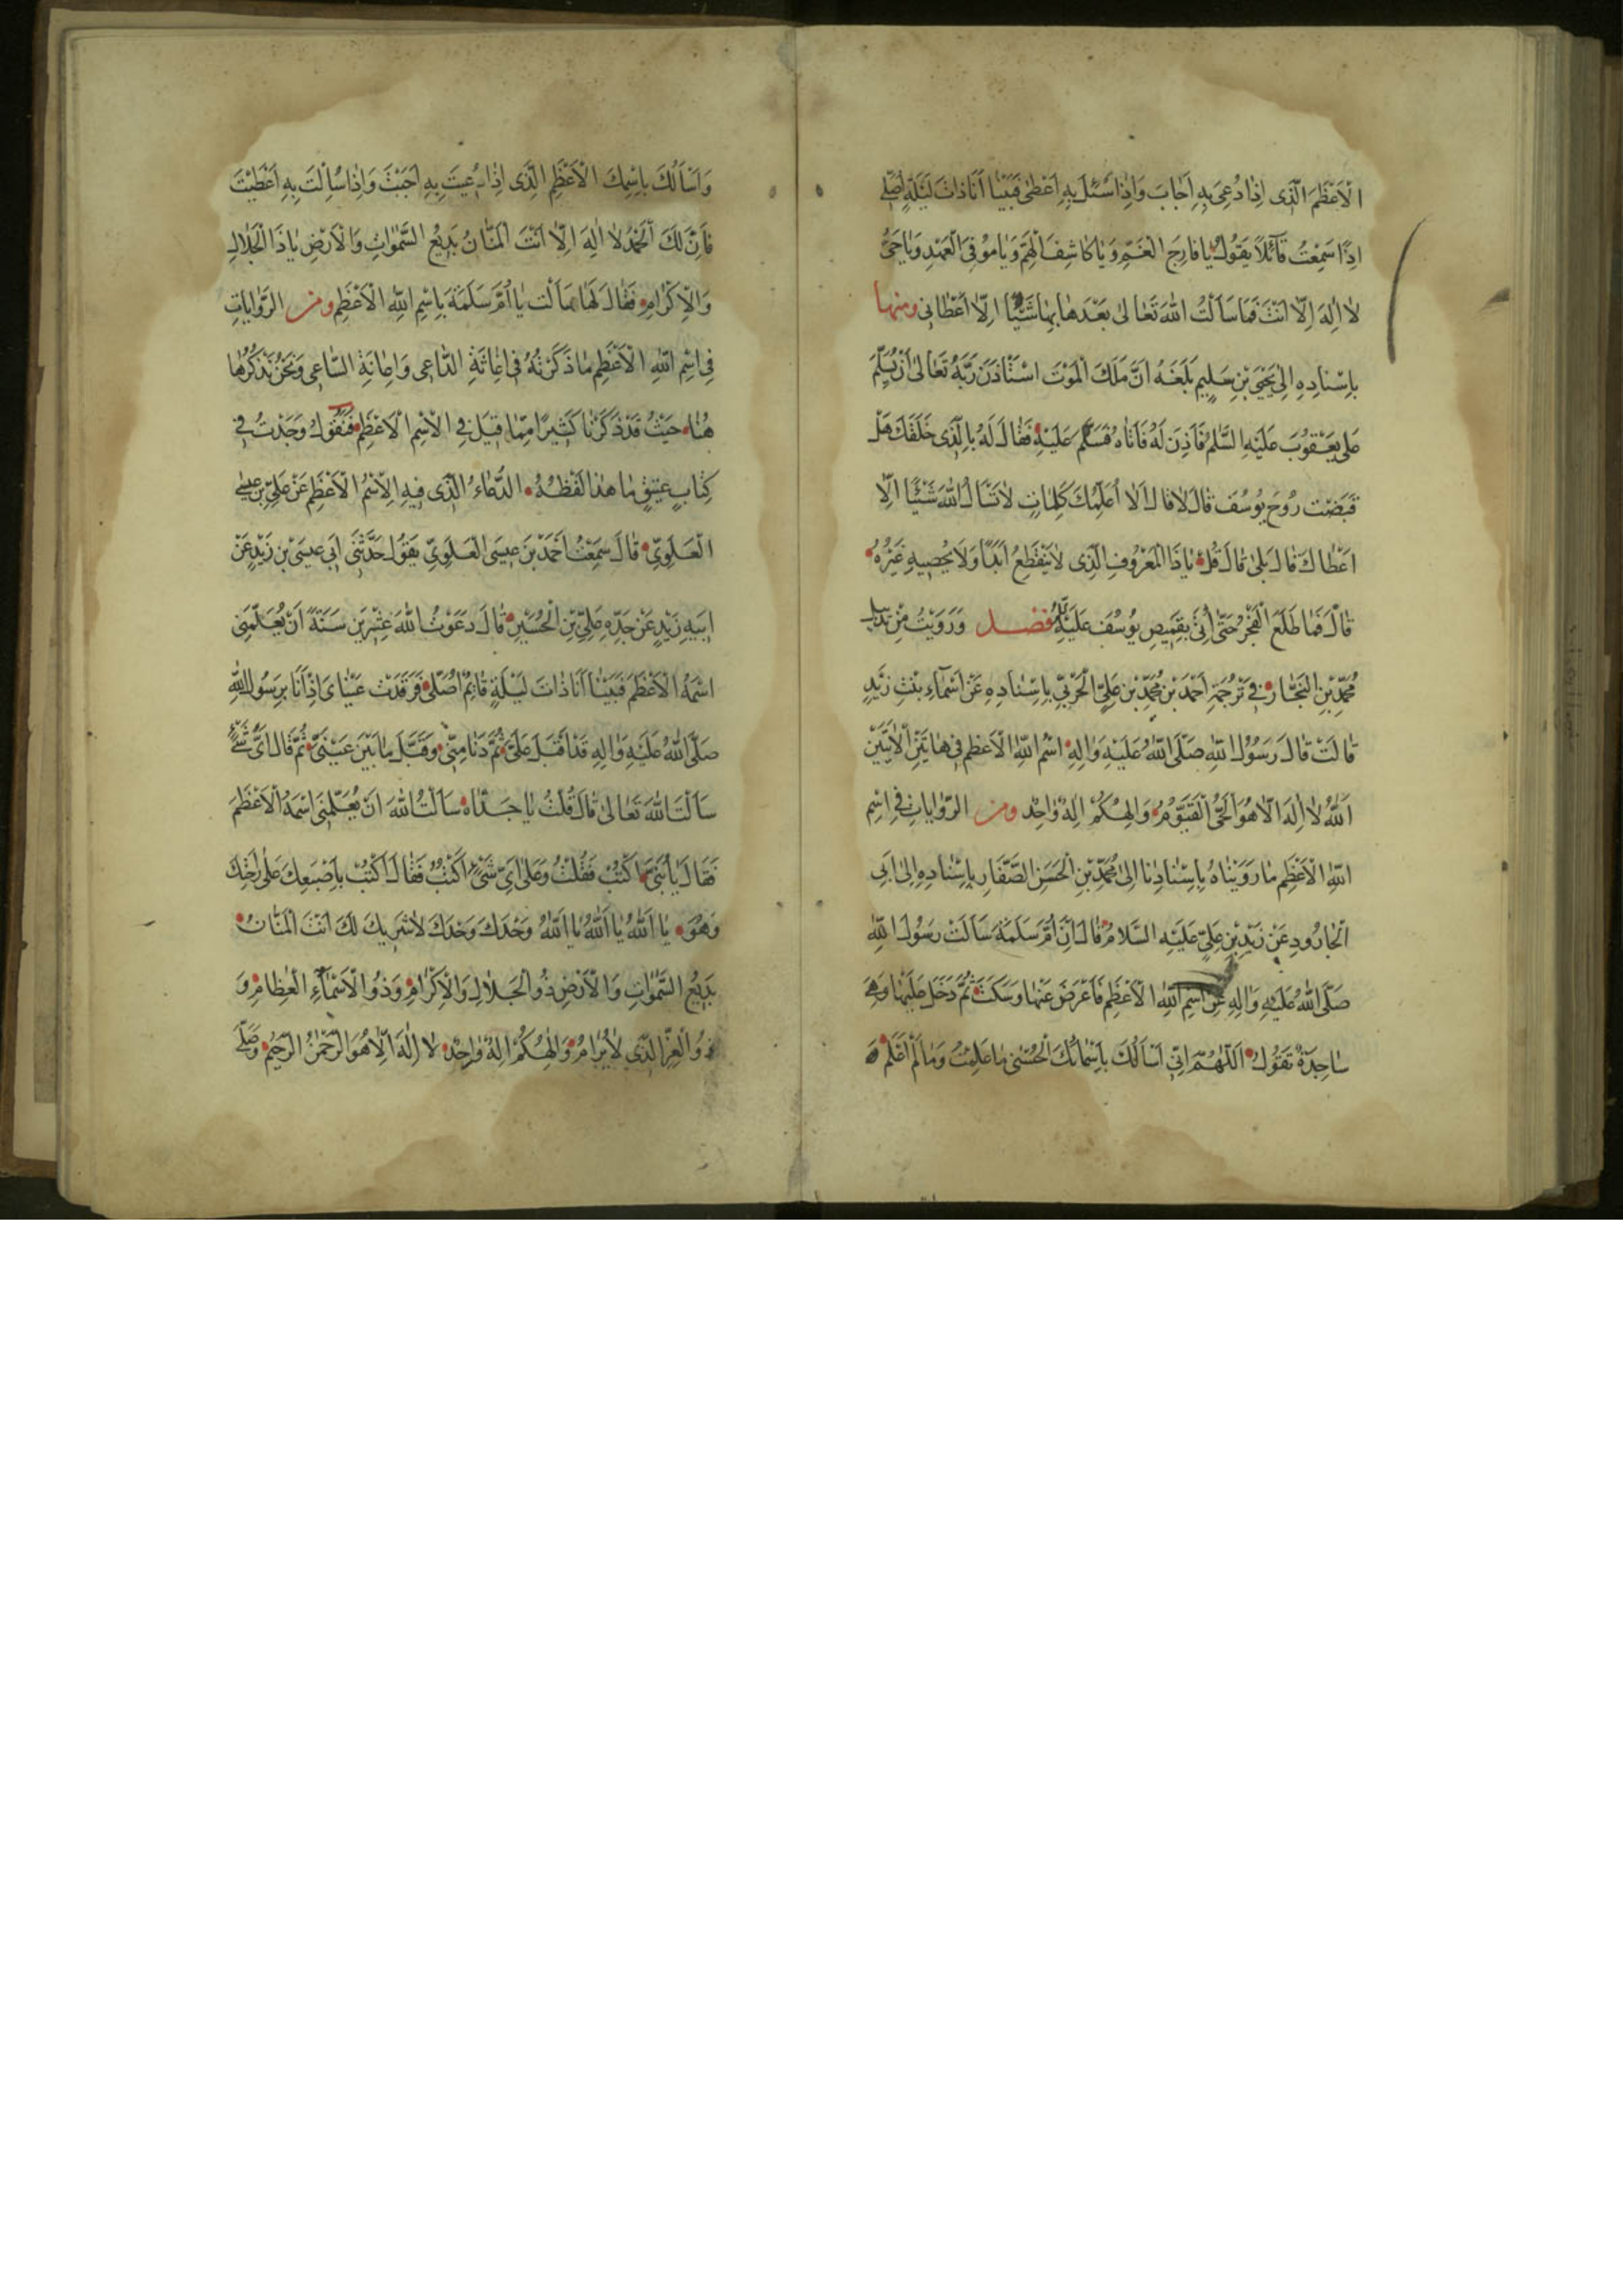 الْاَعْظَمَ الَّذِى اِذَا دُعِىَ بِهِ اَجَابَ وَاِذَا سُئِلَ بِهِ اَعْطٰى فَبَيْنَا اَنَا ذَاتَ لَيْلَةٍ اُصَلِّى
اِذًا سَمِعْتُ قَائِلًا يَقُولُ يَا فَارِجَ الْغَمِّ وَيَا كَاشِفَ الْهَمِّ وَيَا مُوفِىَ الْعَهْدِ وَيَا حَىُّ
لَا اِلٰهَ اِلَّا اَنْتَ فَمَا سَاَلْتُ اللّٰهَ تَعَالٰى بَعْدَهَا بِهَا شَيْئًا اِلَّا اَعْطَانِى ومنها
بِاِسْنَادِهِ اِلٰى يَحْيَى بْنِ سَلِيمٍ بَلَغَهُ اَنَّ مَلَكَ الْمَوْتَ اسْتَأْذَنَ رَبَّهُ تَعَالٰى اَنْ يُسَلِّمَ
عَلٰى يَعْقُوبَ عَلَيْهِ السَّلٰمُ فَاَذِنَ لَهُ فَاَتَاهُ فَسَلَّمَ عَلَيْهِ فَقَالَ لَهُ بِالَّذِى خَلَقَكَ هَلْ
قَبَضْتَ رُوحَ يُوسُفَ قَالَ لَا قَالَ اَلَا اُعَلِّمُكَ كَلِمَاتٍ لَا تَسْاَلُ اللّٰهَ شَيْئًا اِلَّا
اَعْطَاكَ قَالَ بَلٰى قَالَ قُلْ يَا ذَا الْمَعْرُوفِ الَّذِى لَا يَنْقَطِعُ اَبَدًا وَلَا يُحْصِيهِ غَيْرُهُ
قَالَ فَمَا طَلَعَ الْفَجْرُ حَتّٰى اُتِىَ بِقَمِيصِ يُوسُفَ عَلَيْهِ فصل وَرَوَيْتُ مِنْ تذييل
مُحَمَّدِ بْنِ النَّجَّارِ فِى تَرْجُمَةِ اَحْمَدَ بْنِ مُحَمَّدِ بْنِ عَلِىٍّ الْحَرْبِىِّ بِاِسْنَادِهِ عَنْ اَسْمَآءِ بِنْتِ زَيْدٍ
قَالَتْ قَالَ رَسُولُ اللّٰهِ صَلَّى اللّٰهُ عَلَيْهِ وَاٰلِهِ اسْمُ اللّٰهِ الْاَعْظَمِ فِى هَاتَيْنِ الْاٰيَتَيْنِ
اَللّٰهُ لَا اِلٰهَ اِلَّا هُوَ الْحَىُّ الْقَيُّومُ وَاِلٰهُكُمْ اِلٰهٌ وَاحِدٌ ومن الرِّوَايَاتِ فِى اسْمِ
اللّٰهِ الْاَعْظَمِ مَا رَوَيْنَاهُ بِاِسْنَادِنَا اِلٰى مُحَمَّدِ بْنِ الْحَسَنِ الصَّفَّارِ بِاِسْنَادِهِ اِلٰى اَبِى
الْجَارُودِ عَنْ زَيْدِ بْنِ عَلِىٍّ عَلَيْهِ السَّلَامُ قَالَ اِنَّ اُمَّ سَلَمَةَ سَاَلَتْ رَسُولَ اللّٰهِ
صَلَّى اللّٰهُ عَلَيْهِ وَاٰلِهِ عَنِ اسْمِ اللّٰهِ الْاَعْظَمِ فَاَعْرَضَ عَنْهَا وَسَكَتَ ثُمَّ دَخَلَ عَلَيْهَا وَهِىَ
سَاجِدَةٌ تَقُولُ اَللّٰهُمَّ اِنِّى اَسْاَلُكَ بِاَسْمَائِكَ الْحُسْنٰى مَا عَلِمْتُ وَمَا لَمْ اَعْلَمْ
وَاَسْاَلُكَ بِاسْمِكَ الْاَعْظَمِ الَّذِى اِذَا دُعِيتَ بِهِ اَجَبْتَ وَاِذَا سُئِلْتَ بِهِ اَعْطَيْتَ
فَاِنَّ لَكَ الْحَمْدُ لَا اِلٰهَ اِلَّا اَنْتَ الْمَنَّانُ بَدِيعُ السَّمٰوَاتِ وَالْاَرْضِ يَا ذَا الْجَلَالِ
وَالْاِكْرَامِ فَقَالَ لَهَا سَاَلْتِ يَا اُمَّ سَلَمَةَ بِاسْمِ اللّٰهِ الْاَعْظَمِ ومن الرِّوَايَاتِ
فِى اسْمِ اللّٰهِ الْاَعْظَمِ مَا ذَكَرْتُهُ فِى اِغَاثَةِ الدَّاعِى وَاِعَانَةِ السَّاعِى وَنَحْنُ نَذْكُرُهَا
هُنَا حَيْثُ قَدْ ذَكَرْنَا كَثِيرًا مِمَّا قِيلَ فِى الْاِسْمِ الْاَعْظَمِ فَنَقُولُ وَجَدْتُ فِى
كِتَابٍ عَتِيقٍ مَا هٰذَا لَفْظُهُ الدُّعَاءُ الَّذِى فِيهِ الْاِسْمُ الْاَعْظَمُ عَنْ عَلِىِّ بْنِ عِيسٰى
الْعَلَوِىِّ قَالَ سَمِعْتُ اَحْمَدَ بْنَ عِيسَى الْعَلَوِىَّ يَقُولُ حَدَّثَنِى اَبِى عِيسَى بْنِ زَيْدٍ عَنْ
اَبِيهِ زَيْدٍ عَنْ جَدِّهِ عَلِىِّ بْنِ الْحُسَيْنِ قَالَ دَعَوْتُ اللّٰهَ عِشْرِينَ سَنَةً اَنْ يُعَلِّمَنِى
اسْمَهُ الْاَعْظَمَ فَبَيْنَا اَنَا ذَاتَ لَيْلَةٍ قَائِمٌ اُصَلِّى فَرَقَدَتْ عَيْنَاىَ اِذْ اَنَا بِرَسُولِ اللّٰهِ
صَلَّى اللّٰهُ عَلَيْهِ وَاٰلِهِ قَدْ اَقْبَلَ عَلَىَّ ثُمَّ دَنَا مِنِّى وَقَبَّلَ مَا بَيْنَ عَيْنَىَّ ثُمَّ قَالَ اَىَّ شَىْءٍ
سَاَلْتَ اللّٰهَ تَعَالٰى قَالَ قُلْتُ يَا جَدَّاهُ سَاَلْتُ اللّٰهَ اَنْ يُعَلِّمَنِى اسْمَهُ الْاَعْظَمَ
فَقَالَ يَا بُنَىَّ اكْتُبْ فَقُلْتُ وَعَلٰى اَىِّ شَىْءٍ اَكْتُبُ فَقَالَ اكْتُبْ بِاِصْبَعِكَ عَلٰى رَاحَتِكَ
وَهُوَ يَا اَللّٰهُ يَا اَللّٰهُ يَا اَللّٰهُ وَحْدَكَ وَحْدَكَ لَا شَرِيكَ لَكَ اَنْتَ الْمَنَّانُ
بَدِيعُ السَّمٰوَاتِ وَالْاَرْضِ ذُو الْجَلَالِ وَالْاِكْرَامِ وَذُو الْاَسْمَآءِ الْعِظَامِ وَ
ذُو الْعِزِّ الَّذِى لَا يُرَامُ وَاِلٰهُكُمْ اِلٰهٌ وَاحِدٌ لَا اِلٰهَ اِلَّا هُوَ الرَّحْمٰنُ الرَّحِيمُ وَصَلَّى